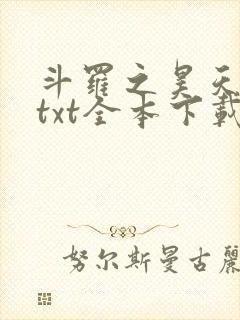 斗罗之昊天
txt全本下载
努尔斯曼古丽